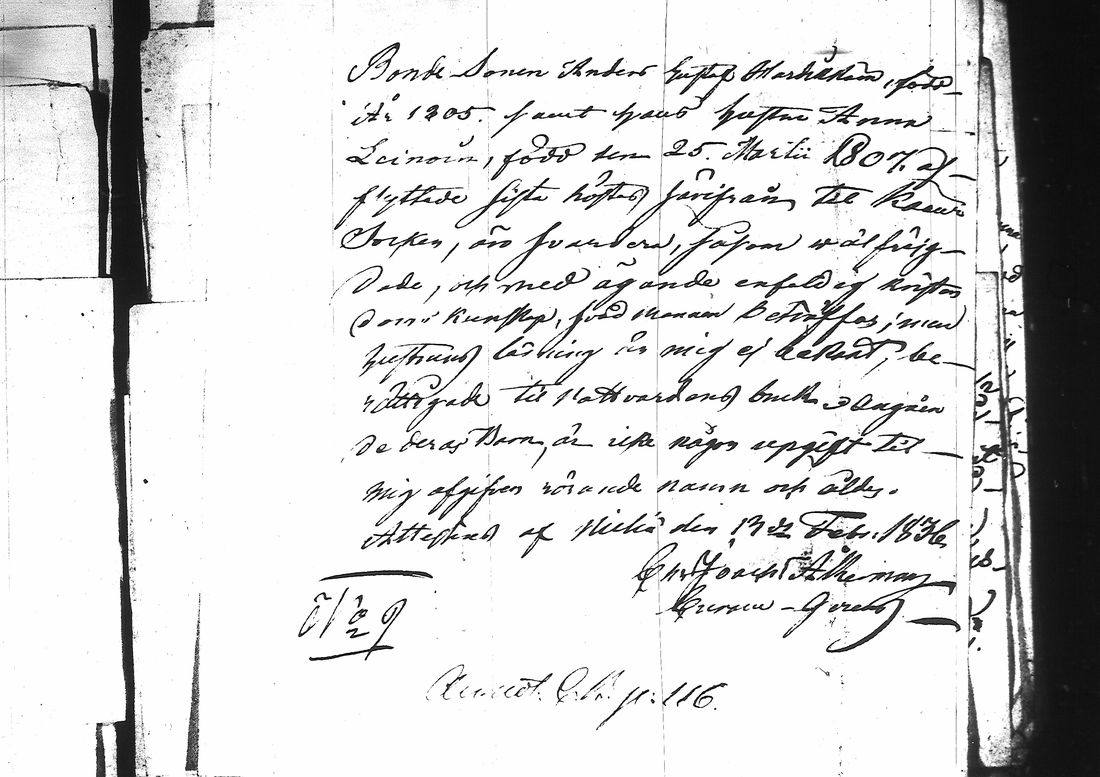 Bonde Sonen Anders Gustaf Hardikain, född
År 1805. samt hans hustru Anna
Leinoin, född den 25. Martii 1807. af-
flyttade sista höstas härifrån til
Socken, äro hvardera, såsom wälfräjg-
dade, och med ägande enfaldig kristen
doms kunskap, hvad mannen beträffar, men
hustruns läsning är mig ej bekant, be-
rättigade til Nattvardens bruk. Angåen
de deras Barn, är icke någon upgift til
mig afgifven rörande namn och ålder.
Attesteras af den 13de Febr. 1836,
Joach Alkeman
p. 116.